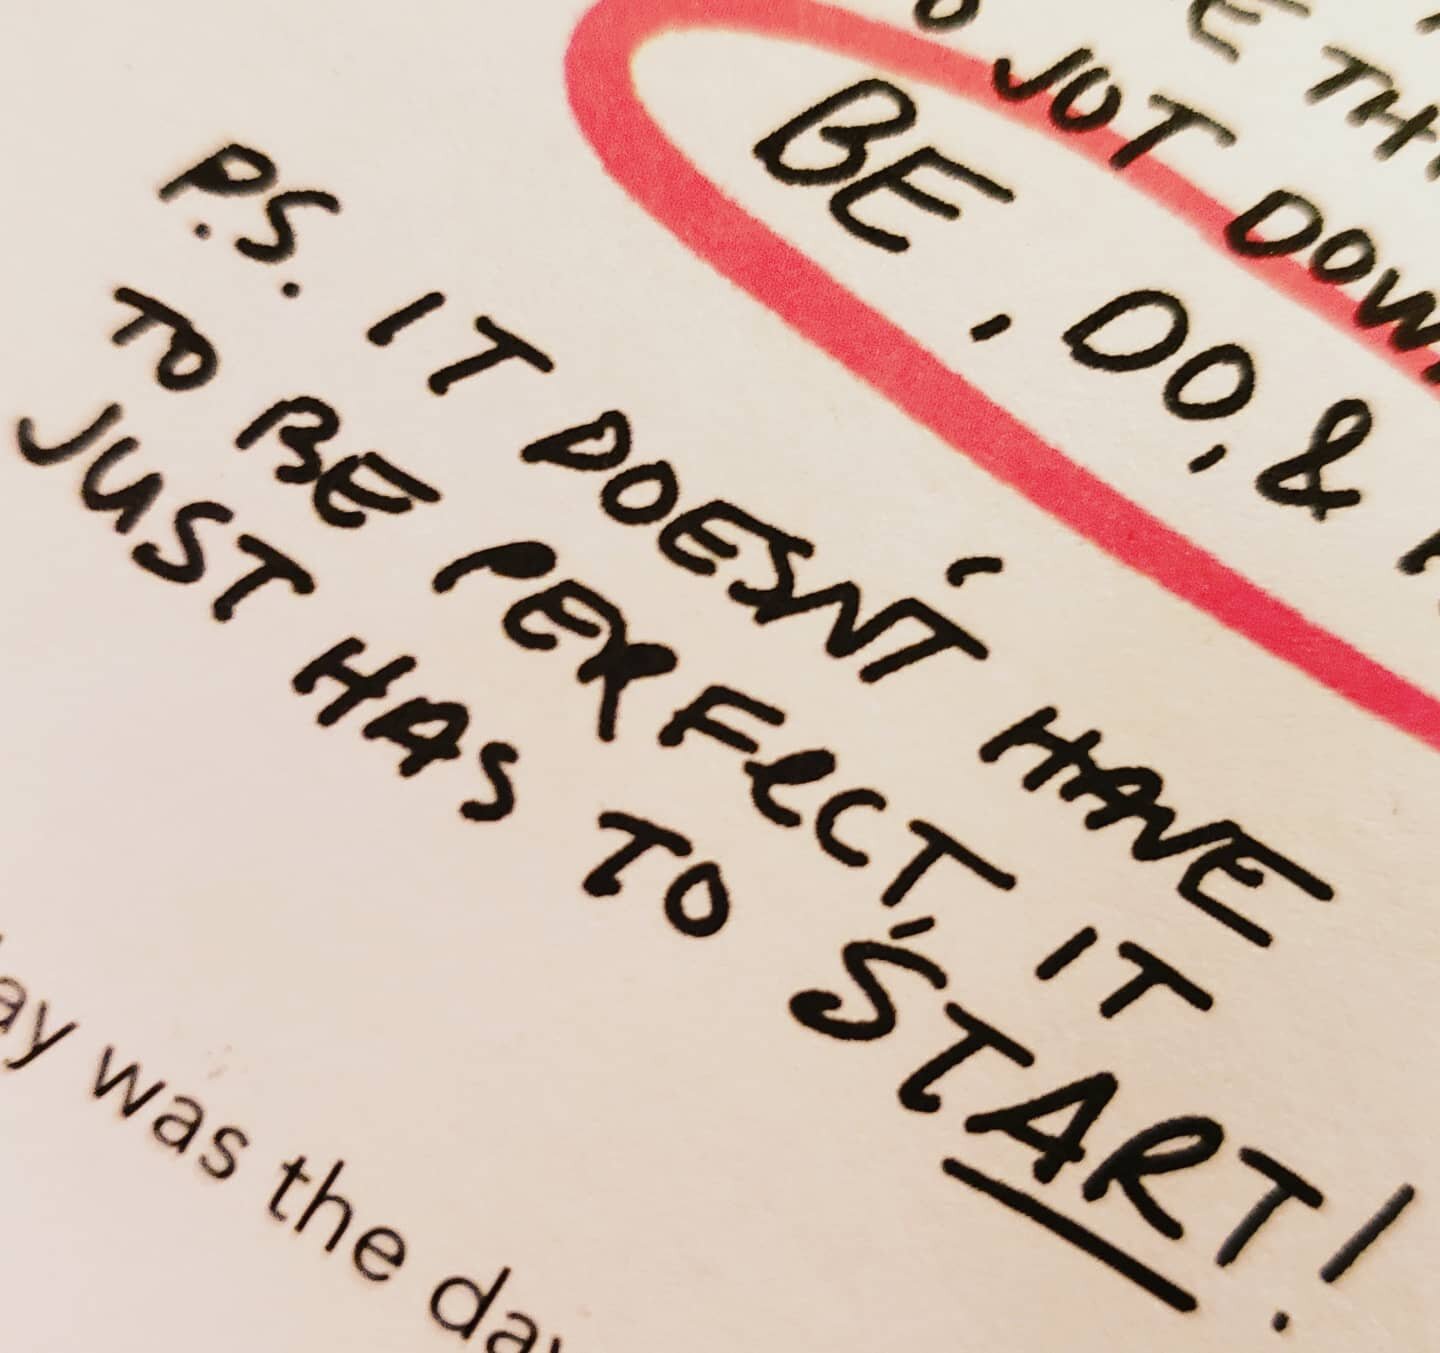 JOT DOWN
BE, DO, &
P.S. IT DOESN'T HAVE
TO BE PERFECT, IT
JUST HAS TO START!
was the day